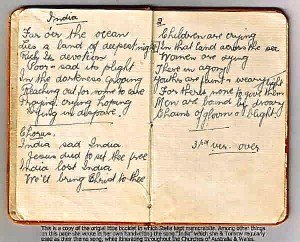 India
Far o'er the ocean
Lies a land of deepest night
Rich its devotion
Poor & sad its plight
In the darkness groping
Reaching out for some to save
Praying, crying, hoping
Dying in despair!
Chorus.
India sad India
Jesus died to set thee free
India lost India
We'll bring Christ to thee
2
Children are crying
In that land across the sea
Women are dying
There in agony
Youths are faint & weary
For there's none to give them
Men are bound by dreary
Chains of gloom & blight!
3rd ver. over
This is a copy of the original little booklet in which Stella kept memorabilia. Among other things
in this page she wrote in her own handwriting the song "India" which she & Tommy regularly
used as their theme song, while itinerating throughout the Churches of Australia & Wales.